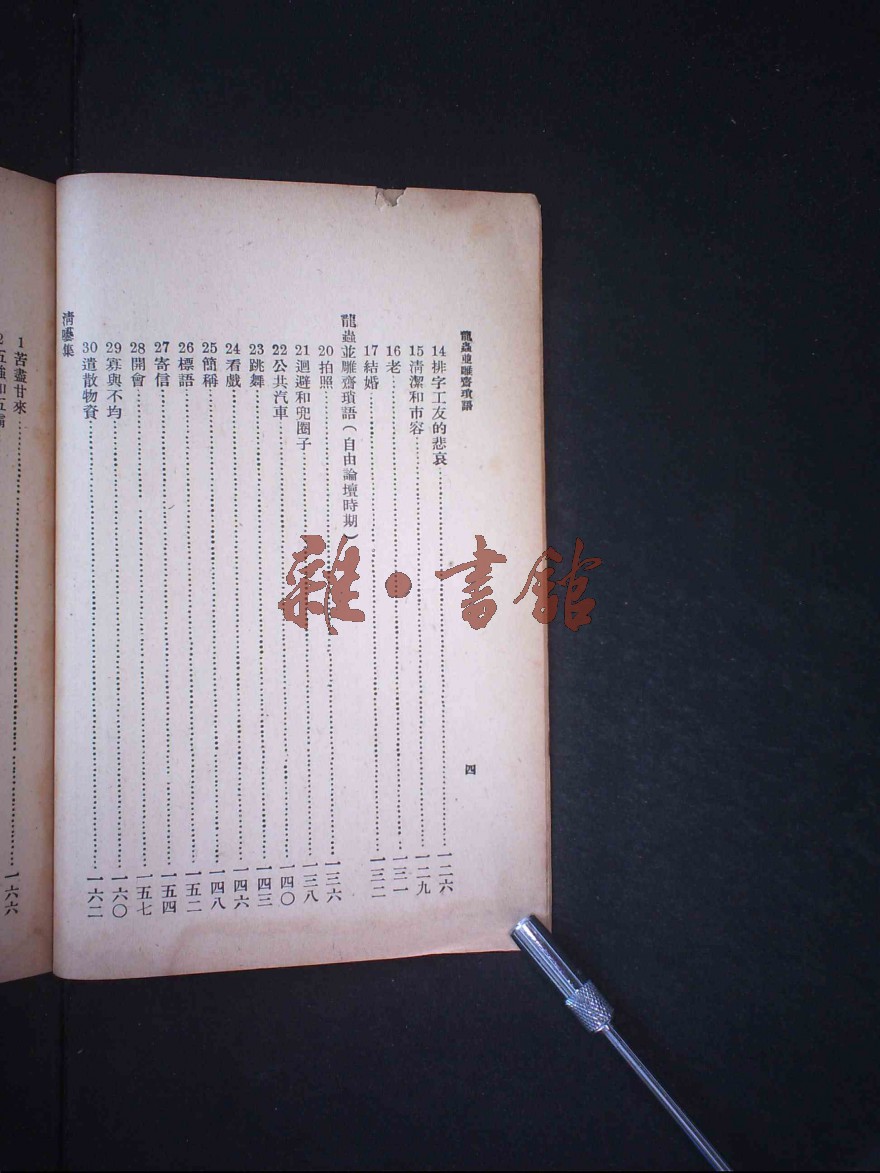 龍蟲並雕齋瑣語
四
14 排字工友的悲哀……一二六
15 清潔和市容……一二九
16 老……一三一
17 結婚……一三二
龍蟲並雕齋瑣語(自由論壇時期)
20 拍照……一三六
21 迴避和兜圈子……一三八
22 公共汽車……一四〇
23 跳舞……一四三
24 看戲……一四六
25 簡稱……一四八
26 標語……一五二
27 寄信……一五四
28 開會……一五七
29 寡與不均……一六〇
30 遣散物資……一六二
清囈集
1 苦盡甘來……一六六
2 五強和五霸
雜·書館